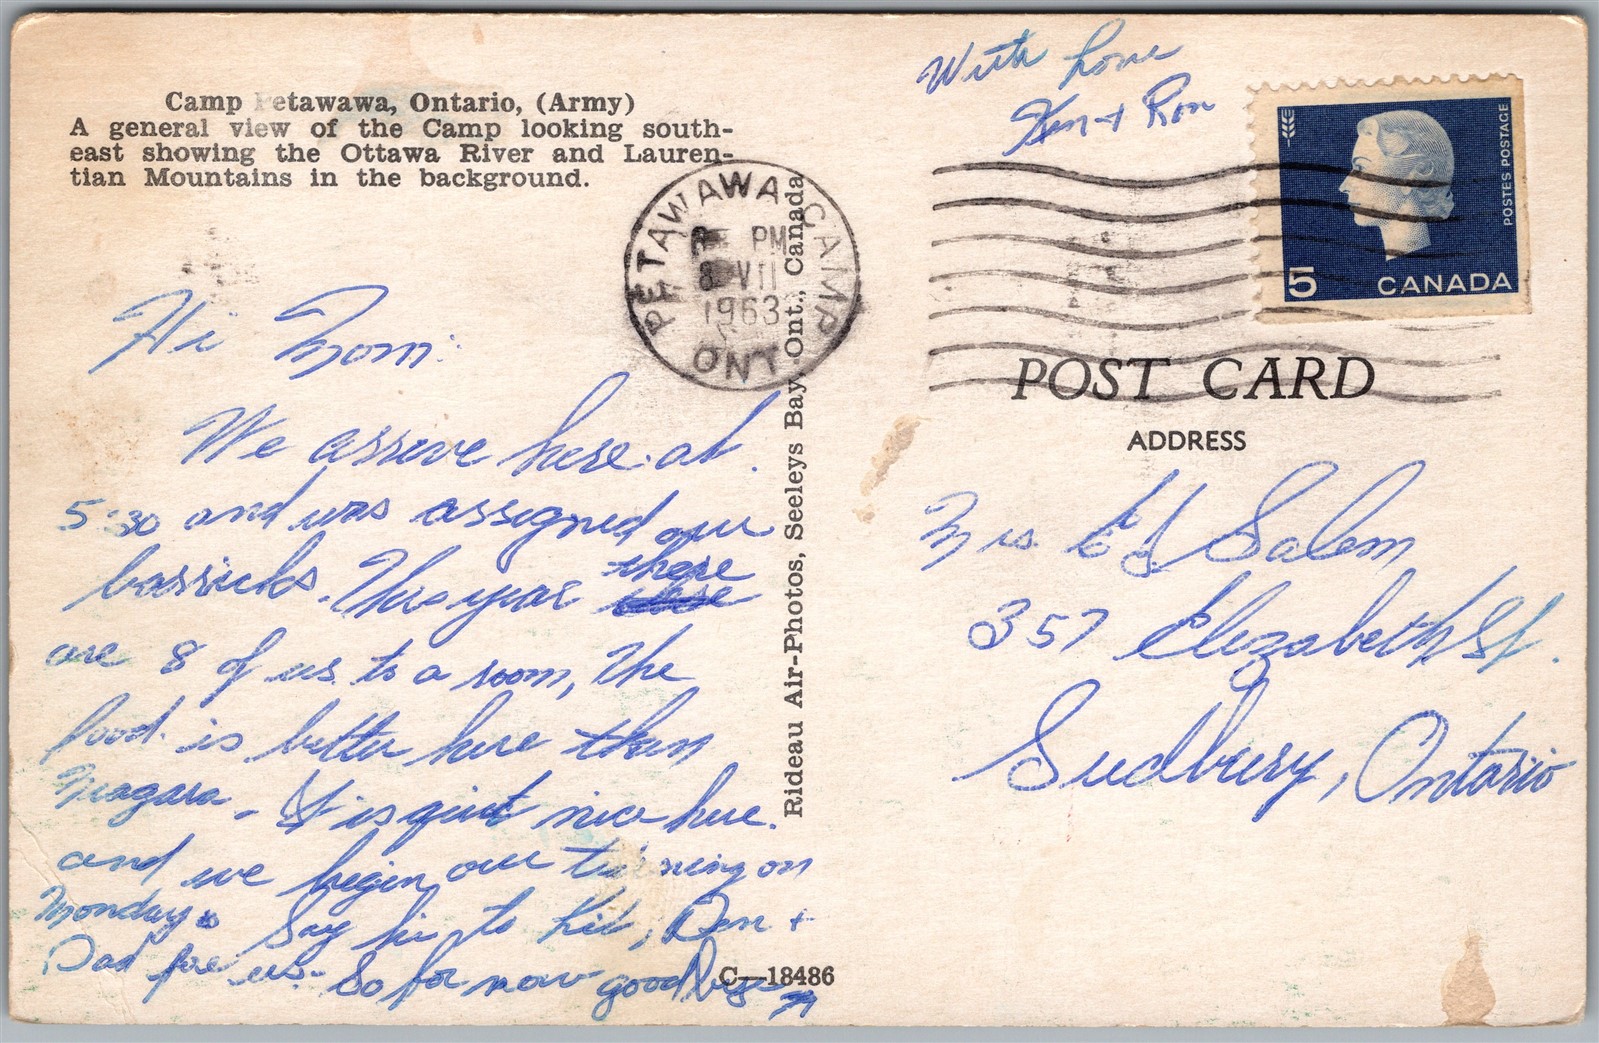 Camp Petawawa, Ontario, (Army)
A general view of the Camp looking south-
east showing the Ottawa River and Lauren-
tian Mountains in the background.
Hi Mom:
We arrive here at
5:30 and was assigned our
barricks. This year there
are 8 of us to a room, The
food is better here than
Niagara - It is quit nice here.
and we begin our training on
Monday. Say hi to Kid, Den +
Dad for us. So for now goodbye
C—18486
Rideau Air-Photos, Seeleys Bay, Ont., Canada
PETAWAWA CAMP
PM
8 VII
1963
ONT
With Love
Ken + Ron
POSTES POSTAGE
5 CANADA
POST CARD
ADDRESS
Mrs. E J Salem
357 Elizabeth St.
Sudbury, Ontario